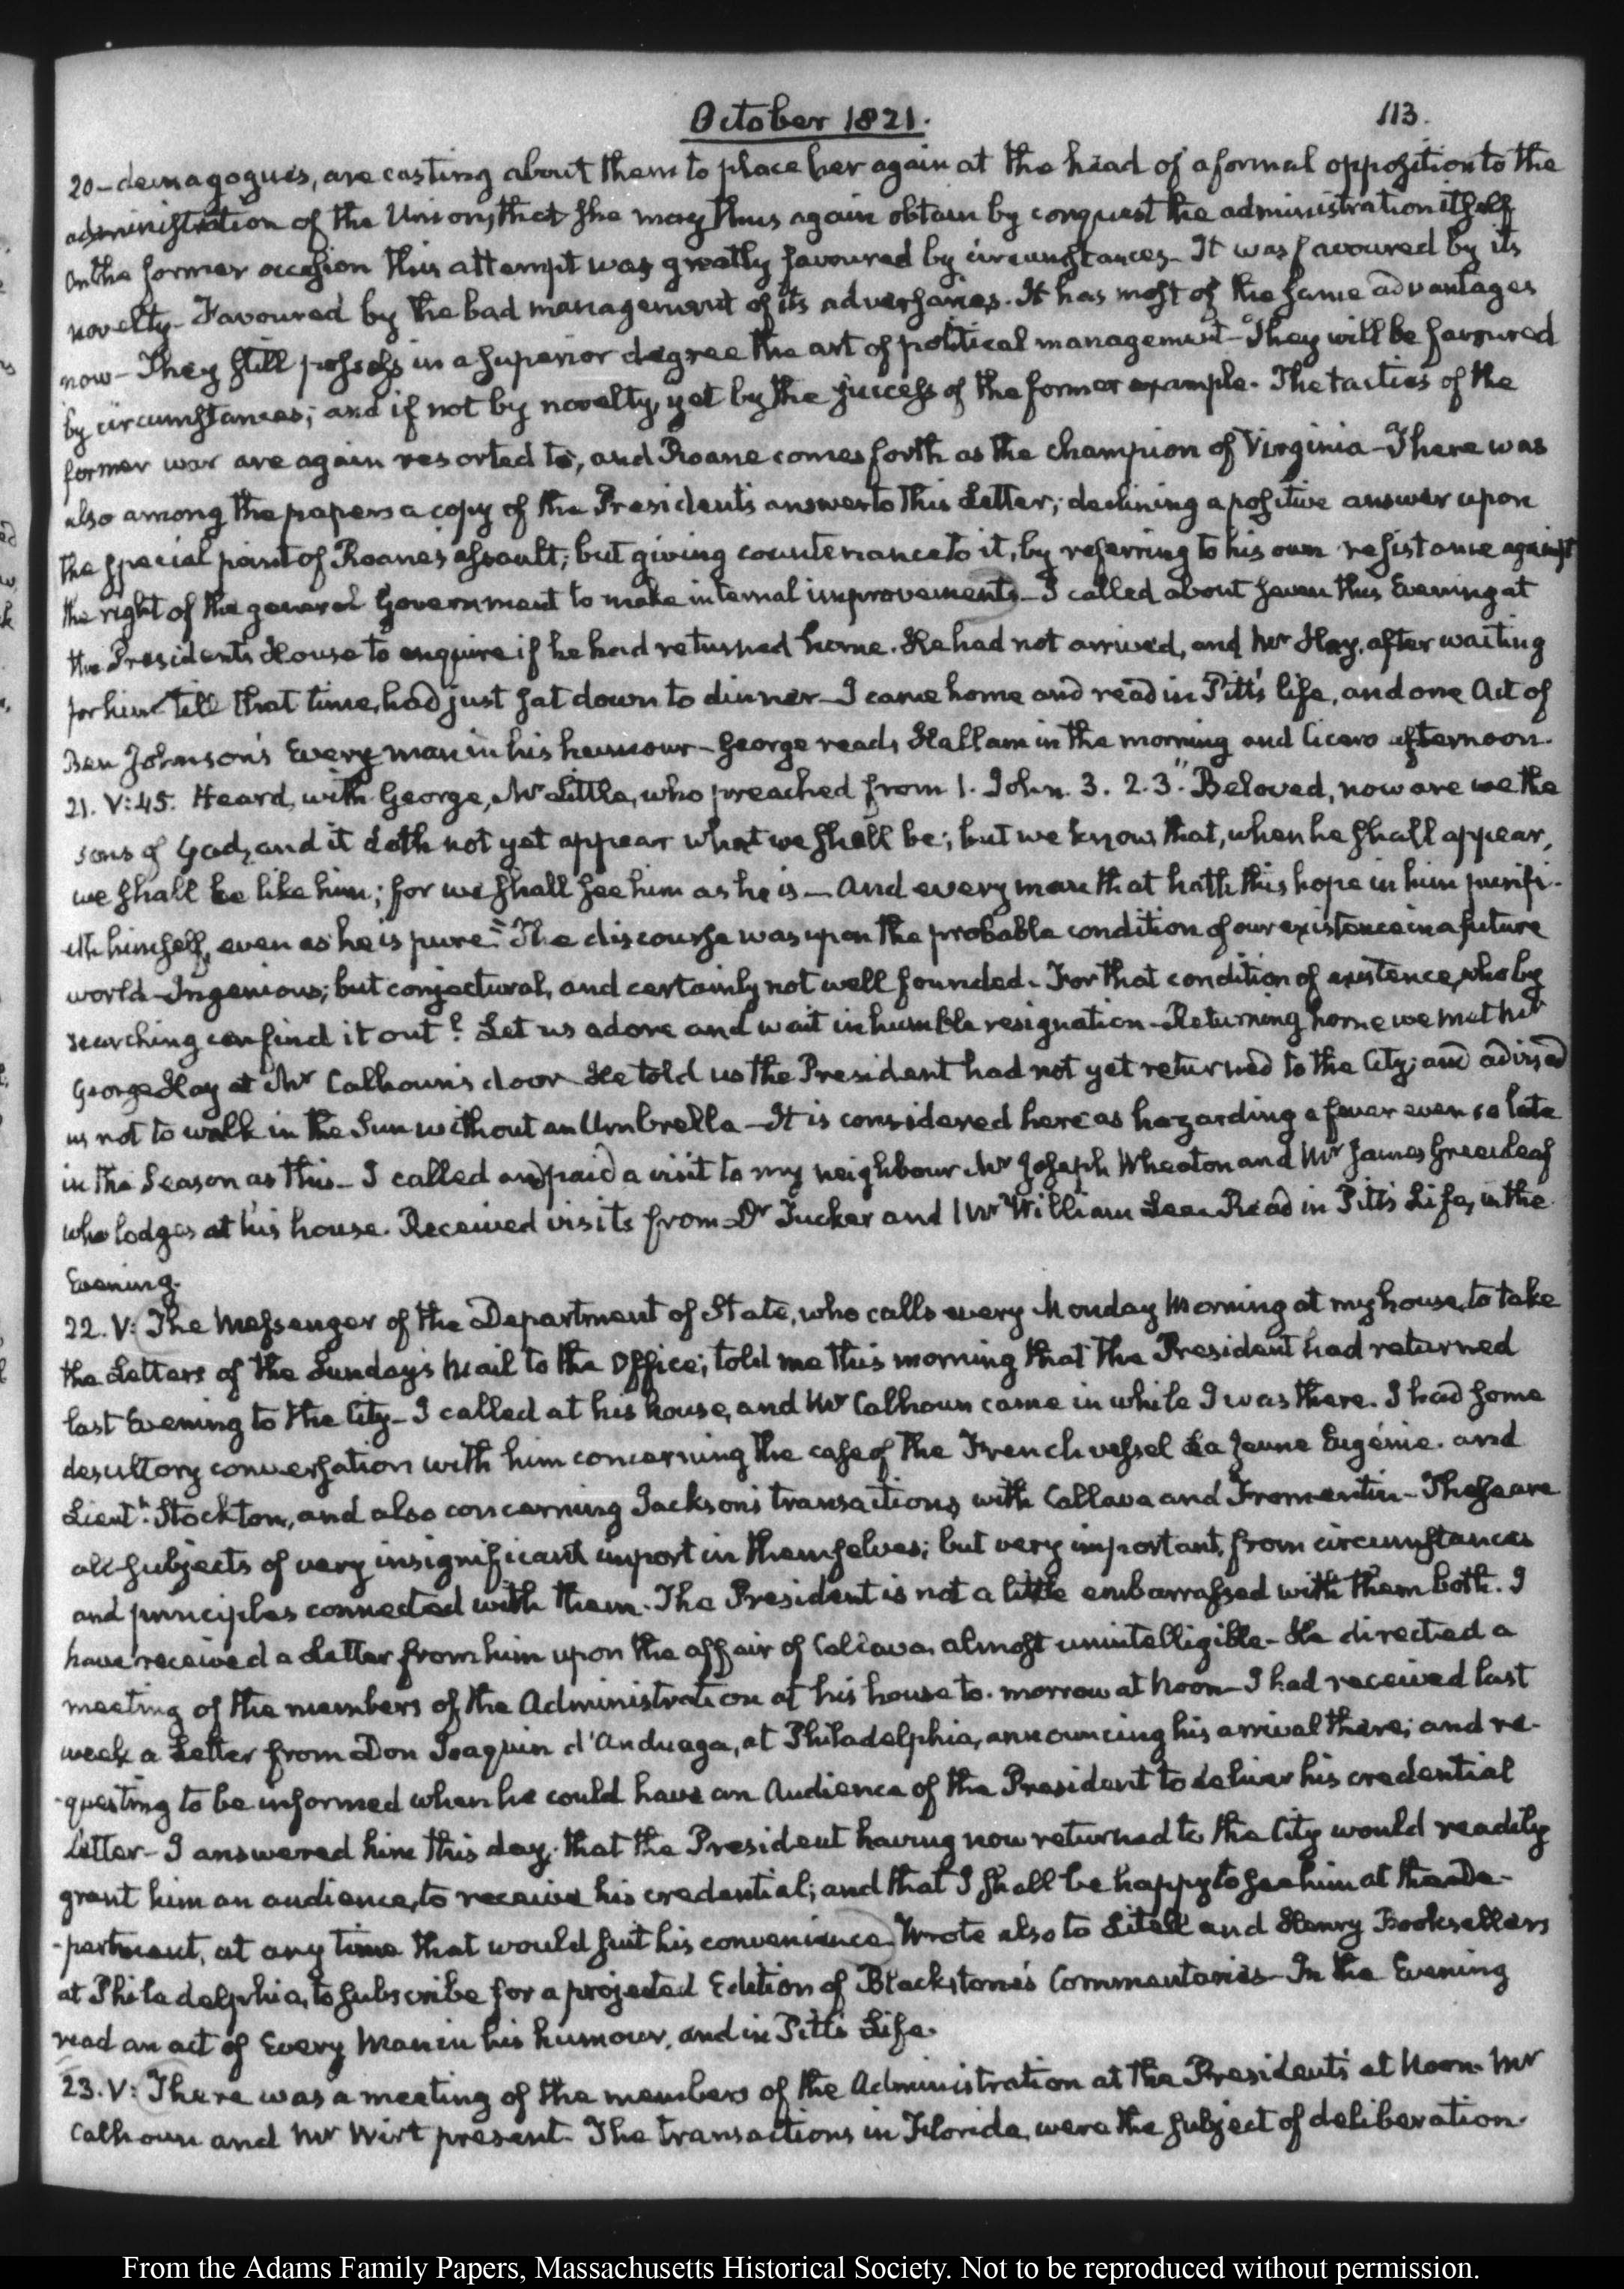 October 1821.
113.
20- demagogues, are casting about them to place her again at the head of a formal opposition to the
administration of the Union, that she may thus again obtain by conquest the administration itself
On the former occasion this attempt was greatly favoured by circumstances- It was favoured by its
novelty- Favoured by the bad management of its adversaries. It has most of the same advantages
now- They still possess in a superior degree the art of political management- They will be favoured
by circumstances; and if not by novelty, yet by the success of the former example. The tactics of the
former war are again resorted to, and Roane comes forth as the champion of Virginia- There was
also among the papers a copy of the President's answer to this Letter; declining a positive answer upon
the special point of Roane's assault; but giving countenance to it, by referring to his own resistance against
the right of the general Government to make internal improvements- I called about seven this Evening at
the President's House to enquire if he had returned home. He had not arrived, and Mr Hay, after waiting
for him till that time, had just sat down to dinner- I came home and read in Pitt's life, and one Act of
Ben Johnson's Every man in his humour- George reads Hallam in the morning and Cicero afternoon.
21. V:45. Heard, with George, Mr Little, who preached from 1. John. 3. 2. 3. "Beloved, now are we the
sons of God, and it doth not yet appear what we shall be; but we know that, when he shall appear,
we shall be like him; for we shall see him as he is- And every man that hath this hope in him purifi-
eth himself, even as he is pure." The discourse was upon the probable condition of our existence in a future
world- Ingenious; but conjectural, and certainly not well founded- For that condition of existence, who by
searching can find it out? Let us adore and wait in humble resignation- Returning home we met Mr
George Hay at Mr Calhoun's door He told us the President had not yet returned to the City; and advised
us not to walk in the Sun without an Umbrella- It is considered here as hazarding a fever even so late
in the Season as this- I called and paid a visit to my neighbour Mr Joseph Wheaton and Mr James Greenleaf
who lodges at his house. Received visits from Dr Tucker and Mr William Lee. Read in Pitt's Life, in the
Evening.
22. V: The Messenger of the Department of State, who calls every Monday Morning at my house, to take
the Letters of the Sunday's Mail to the Office; told me this morning that the President had returned
last Evening to the City- I called at his house, and Mr Calhoun came in while I was there. I had some
desultory conversation with him concerning the case of the French vessel La Jeune Eugénie. and
Lieutt. Stockton, and also concerning Jackson's transactions with Callava and Fromentin- These are
all subjects of very insignificant import in themselves; but very important, from circumstances
and principles connected with them. The President is not a little embarrassed with them both. I
have received a Letter from him upon the affair of Callava, almost unintelligible- He directed a
meeting of the members of the Administration at his house to-morrow at Noon- I had received last
week a Letter from Don Joaquin d'Anduaga, at Philadelphia, announcing his arrival there; and re-
-questing to be informed when he could have an Audience of the President to deliver his credential
Letter- I answered him this day. that the President having now returned to the City would readily
grant him an audience, to receive his credential; and that I shall be happy to see him at the De-
-partment, at any time that would suit his convenience. Wrote also to Litell and Henry Booksellers
at Philadelphia, to subscribe for a projected Edition of Blackstone's Commentaries- In the Evening
read an act of Every Man in his humour, and in Pitt's Life.
23. V: There was a meeting of the members of the Administration at the President's at Noon. Mr
Calhoun and Mr Wirt present- The transactions in Florida, were the subject of deliberation.
From the Adams Family Papers, Massachusetts Historical Society. Not to be reproduced without permission.